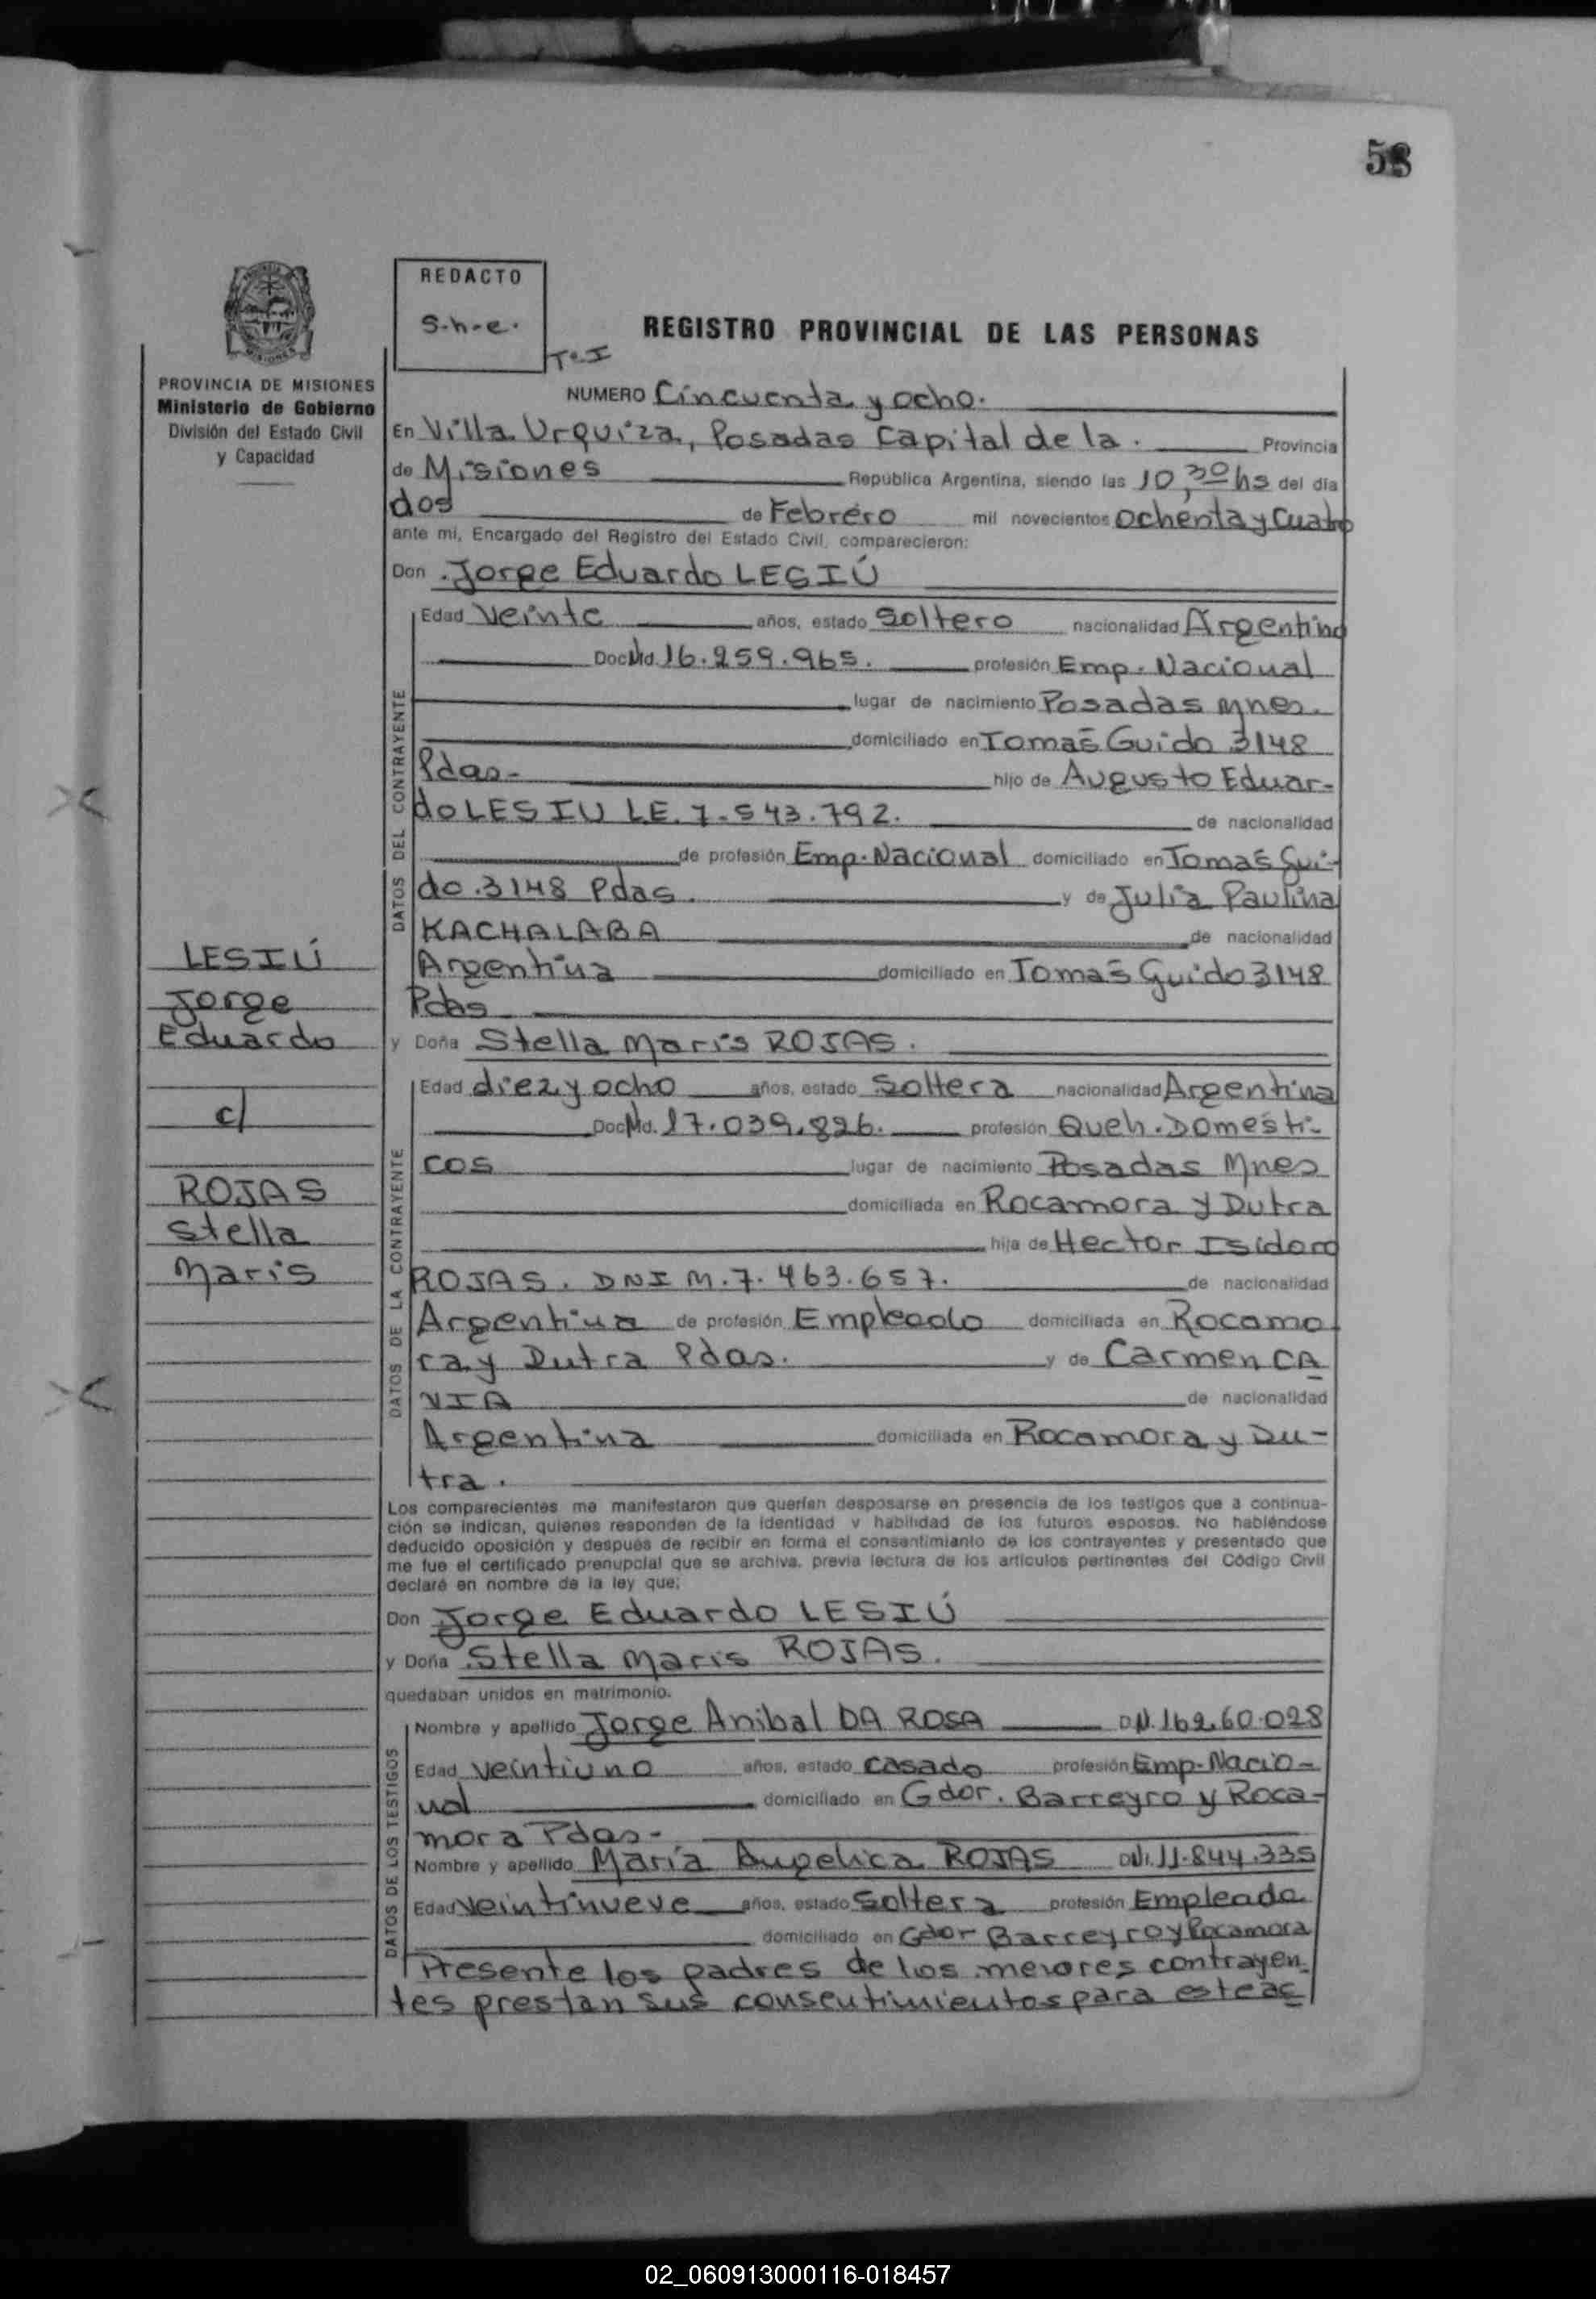 58
REDACTO
S.h.e.
Tº I
REGISTRO PROVINCIAL DE LAS PERSONAS
PROVINCIA DE MISIONES
Ministerio de Gobierno
División del Estado Civil
y Capacidad
NUMERO Cincuenta y ocho.
En Villa Urquiza, Posadas Capital de la. Provincia
de Misiones República Argentina, siendo las 10,30 hs del día
dos de Febrero mil novecientos ochenta y cuatro
ante mi, Encargado del Registro del Estado Civil, comparecieron:
Don Jorge Eduardo LESIÚ
DATOS DEL CONTRAYENTE
Edad Veinte años, estado Soltero nacionalidad Argentino
Doc. Nd. 16.259.965. profesión Emp. Nacional
lugar de nacimiento Posadas Mnes.
domiciliado en Tomas Guido 3148
Pdas- hijo de Augusto Eduar-
do LESIU LE. 7.543.792. de nacionalidad
de profesión Emp. Nacional domiciliado en Tomas Gui-
do 3148 Pdas. y de Julia Paulina
KACHALABA de nacionalidad
Argentina domiciliado en Tomas Guido 3148
Pdas
y Doña Stella Maris ROJAS.
LESIÚ
Jorge
Eduardo
c/
ROJAS
Stella
Maris
DATOS DE LA CONTRAYENTE
Edad diez y ocho años, estado Soltera nacionalidad Argentina
Doc. Nd. 17.039.826. profesión Queh. Domesti-
cos lugar de nacimiento Posadas Mnes
domiciliada en Rocamora y Dutra
hija de Hector Isidoro
ROJAS. DNI M. 7.463.657. de nacionalidad
Argentina de profesión Empleado domiciliada en Rocamo
ra y Dutra Pdas. y de Carmen CA
VIA de nacionalidad
Argentina domiciliada en Rocamora y Du-
tra.
Los comparecientes me manifestaron que querían desposarse en presencia de los testigos que a continua-
ción se indican, quienes responden de la identidad y habilidad de los futuros esposos. No habiéndose
deducido oposición y después de recibir en forma el consentimiento de los contrayentes y presentado que
me fue el certificado prenupcial que se archiva, previa lectura de los artículos pertinentes del Código Civil
declaré en nombre de la ley que:
Don Jorge Eduardo LESIÚ
y Doña Stella Maris ROJAS.
quedaban unidos en matrimonio.
DATOS DE LOS TESTIGOS
Nombre y apellido Jorge Anibal DA ROSA DN. 162.60.028
Edad veintiuno años, estado casado profesión Emp. Nacio-
nal domiciliado en Gdor. Barreyro y Roca-
mora Pdas-
Nombre y apellido Maria Angelica ROJAS DNI. 11.844.335
Edad veintinueve años, estado Soltera profesión Empleada
domiciliado en Gdor Barreyro y Rocamora
Presente los padres de los menores contrayen-
tes prestan sus consentimientos para este ac
02_060913000116-018457